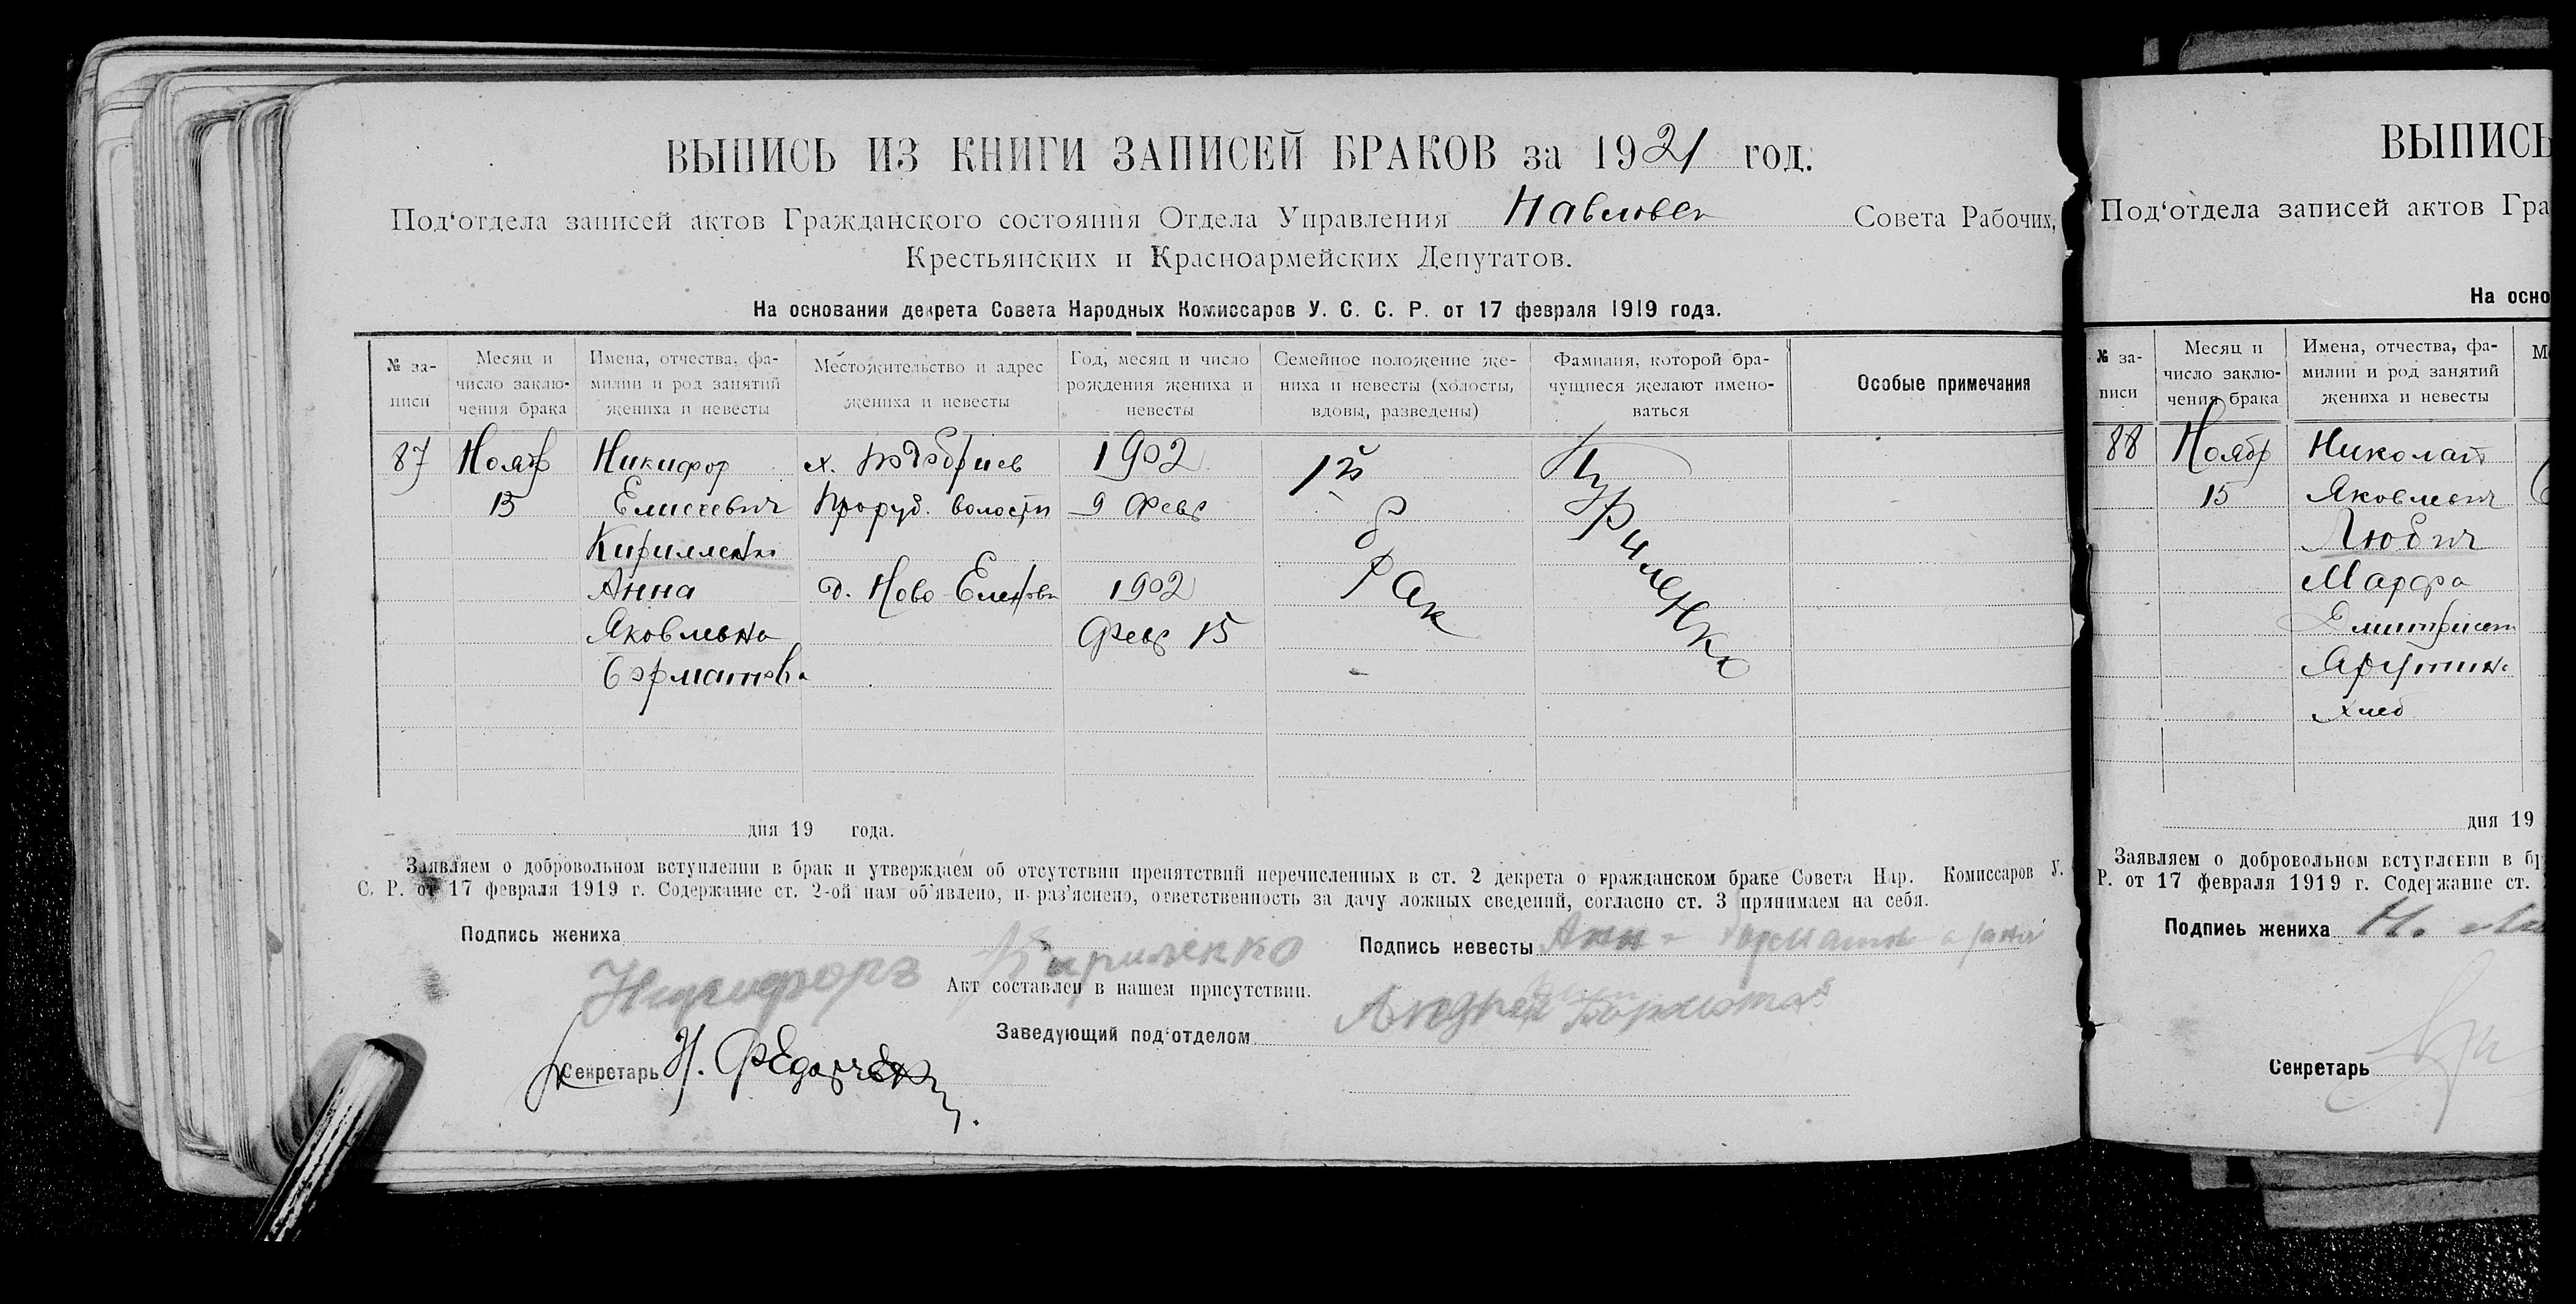 ВЫПИСЬ ИЗ КНИГИ ЗАПИСЕЙ БРАКОВ за 1921 год.
Под‘отдела записей актов Гражданского состояния Отдела Управления Совета Рабочих,
Крестьянских и Красноармейских Депутатов.
На основании декрета Совета Народных Комиссаров У. С. С. Р. от 17 февраля 1919 года.
№ за-
писи
Месяц и
число заклю-
чения брака
Имена, отчества, фа-
милии и род занятий
жениха и невесты
Местожительство и адрес
жениха и невесты
Год, месяц и число
рождения жениха и
невесты
Семейное положение же-
ниха и невесты (холосты,
вдовы, разведены)
Фамилия, которой бра-
чущиеся желают имено-
ваться
Особые примечания
87 Ноябр Никифор х. 1902 1й
15 Елисеевич волости 9 Февр брак
Кириленко
Анна д. Ново 1902
Яковлевна Февр 15
дня 19 года.
Заявляем о добровольном вступлении в брак и утверждаем об отсутствии препятствий перечисленных в ст. 2 декрета о гражданском браке Совета Нар. Комиссаров У.
С. Р. от 17 февраля 1919 г. Содержание ст. 2-ой нам об‘явлено, и раз‘яснено, ответственность за дачу ложных сведений, согласно ст. 3 принимаем на себя.
Подпись жениха Подпись невесты
Никифоръ Кириленко
Акт составлен в нашем присутствии.
Заведующий под‘отделом Андрей
Секретарь Н.
ВЫПИСЬ
Под‘отдела записей актов Гра
На осно
№ за-
писи
Месяц и
число заклю-
чения брака
Имена, отчества, фа-
милии и род занятий
жениха и невесты
88 Ноябр Николай
15 Яковлевич
Любич
Марфа
хлеб
дня 19
Заявляем о добровольном вступлении в бр
Р. от 17 февраля 1919 г. Содержание ст.
Подпись жениха Н.
Секретарь